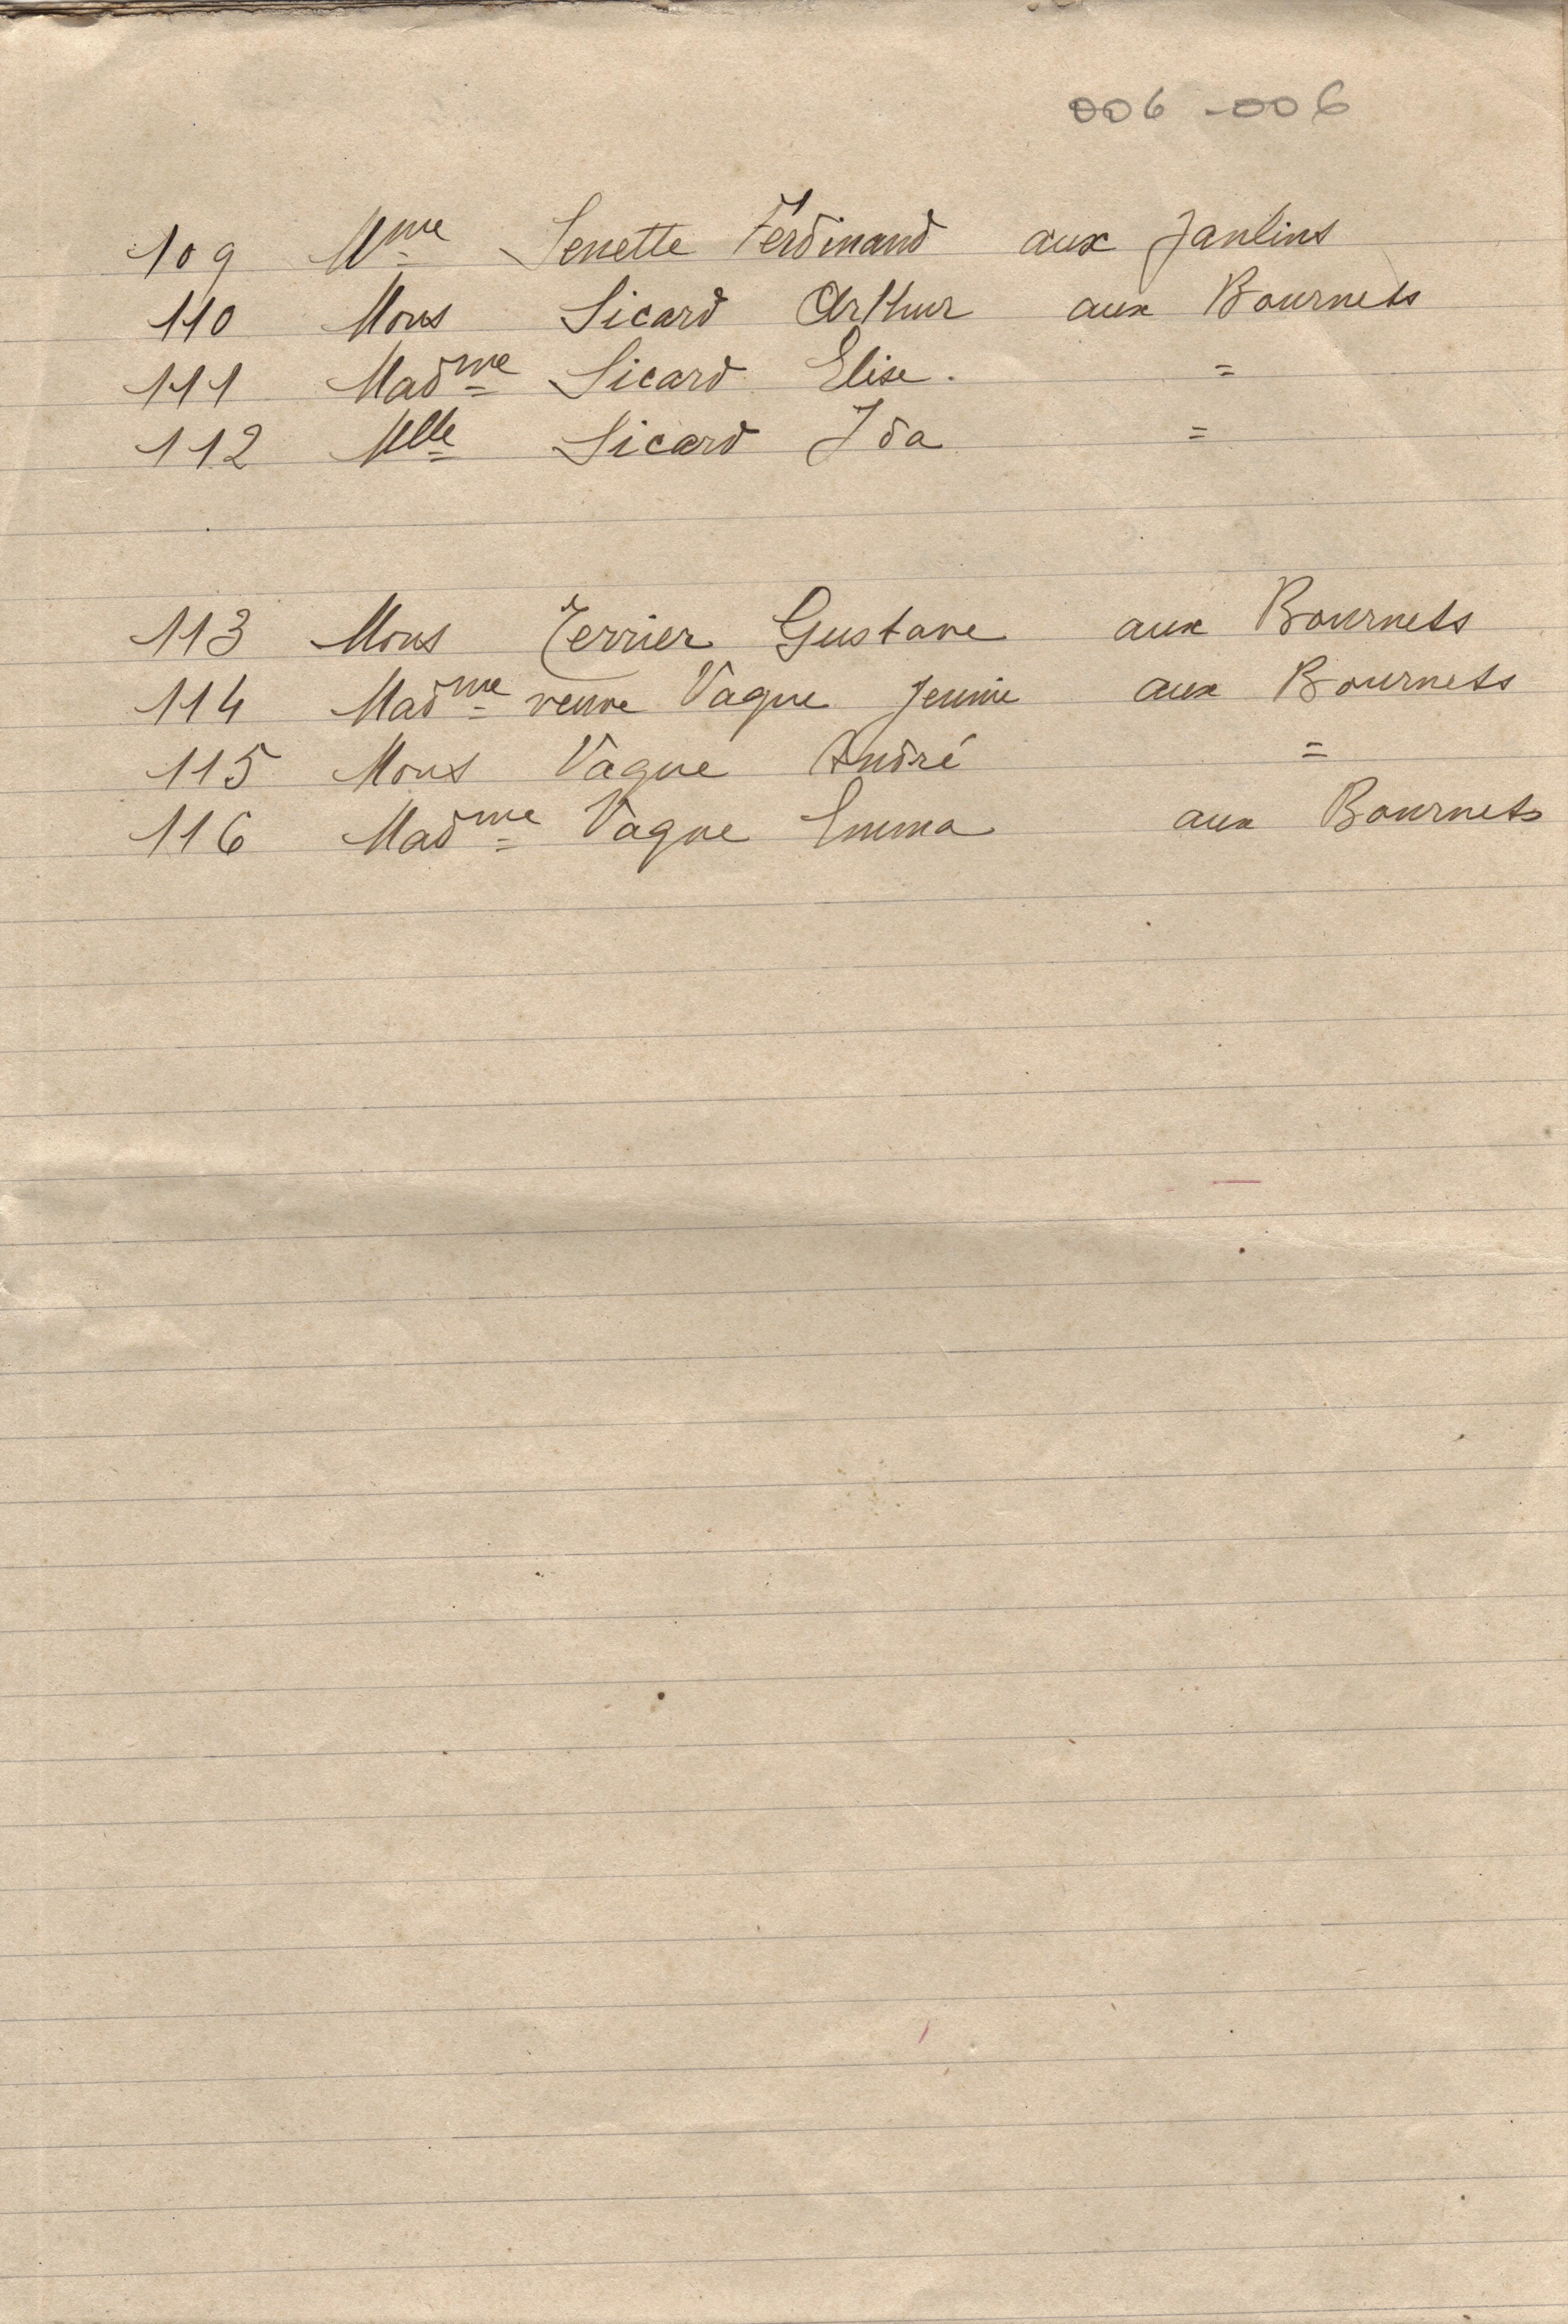 006-006
109 Mme Senette Ferdinand aux Janlins
110 Mons Sicard Arthur aux Bournets
111 Madme Sicard Elise. =
112 Mlle Sicard Ida =
113 Mons Terrier Gustave aux Bournets
114 Madme veuve Vague Jennie aux Bournets
115 Mons Vague André =
116 Madme Vague Emma aux Bournets